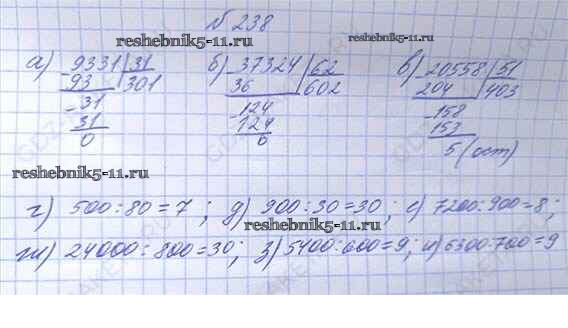 № 238
reshebnik5-11.ru
а) 9331 31 б) 37324 62 в) 20558 51
93 301 36 602 204 403
31 124 158
31 124 153
0 0 5 (ост)
reshebnik5-11.ru
г) 500:80=7; д) 900:30=30; е) 7200:900=8;
reshebnik5-11.ru
ж) 24000:800=30; з) 5400:600=9; и) 6300:700=9